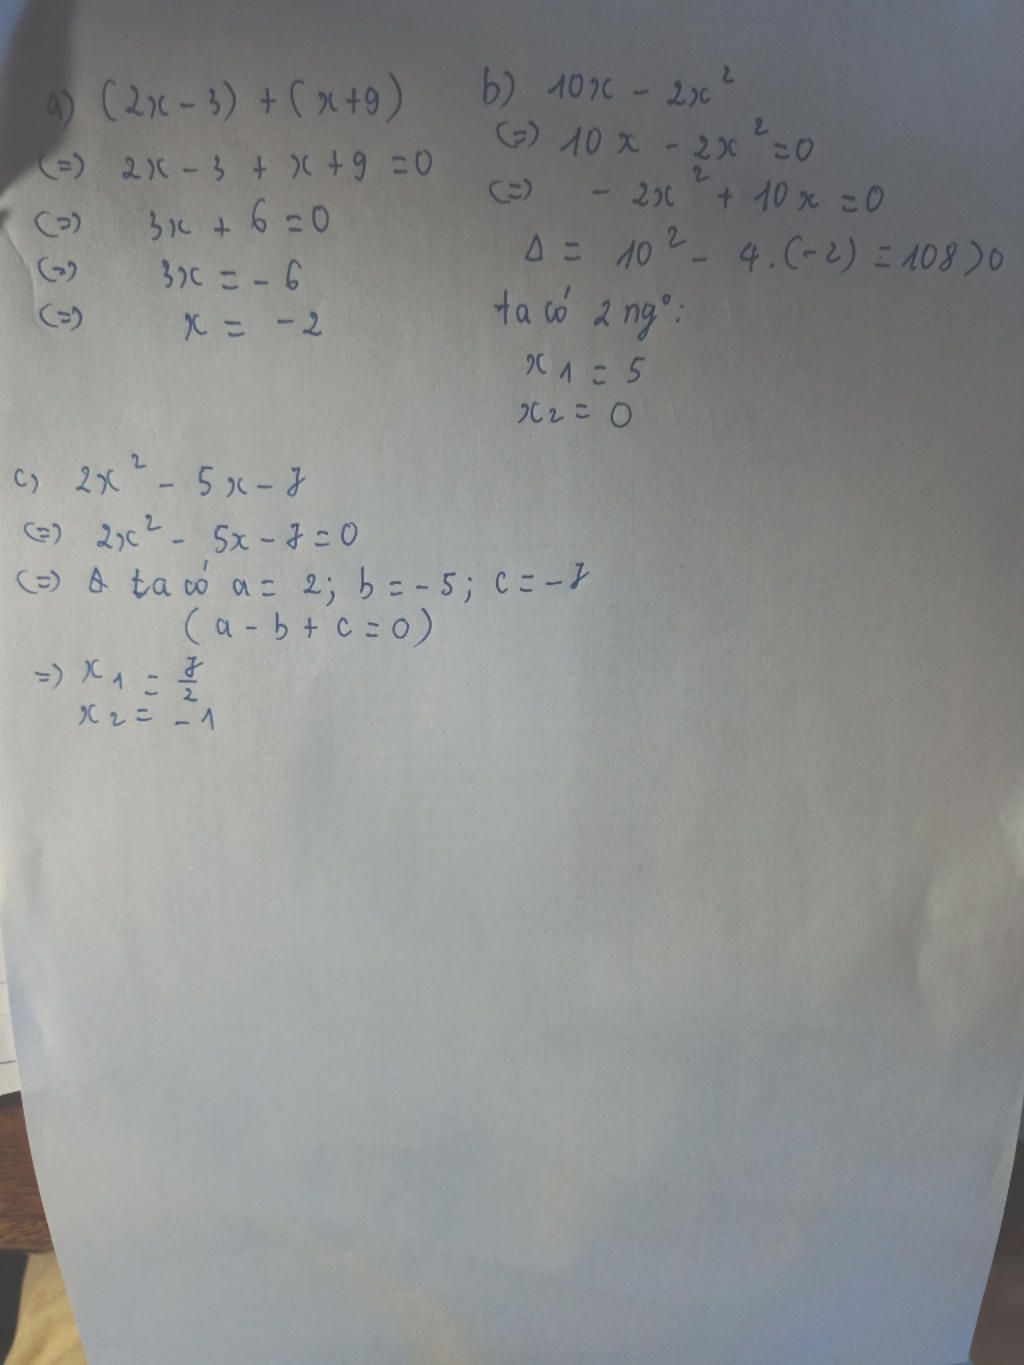 a) (2x - 3) + (x+9)
(=) 2x - 3 + x + 9 = 0
(=) 3x + 6 = 0
(=) 3x = - 6
(=) x = - 2
b) 10x - 2x²
(=) 10x - 2x² = 0
(=) - 2x² + 10x = 0
Δ = 10² - 4.(-2) = 108 > 0
ta có 2 ng°:
x₁ = 5
x₂ = 0
c) 2x² - 5x - 7
(=) 2x² - 5x - 7 = 0
(=) Δ ta có a = 2; b = - 5; c = - 7
(a - b + c = 0)
=) x₁ = 7/2
x₂ = - 1